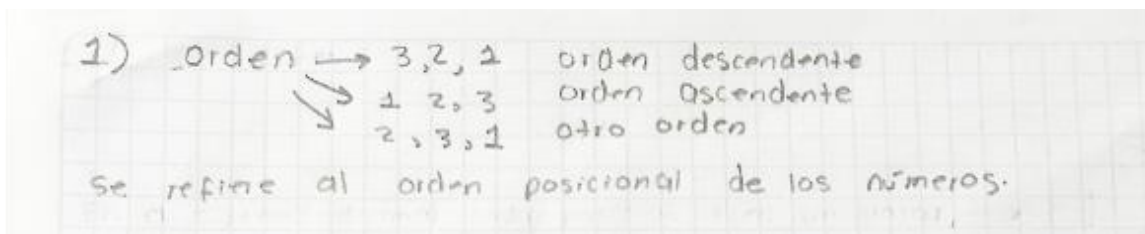 1) orden → 3,2,1 orden descendente
1 2,3 orden ascendente
2,3,1 otro orden
se refiere al orden posicional de los números.